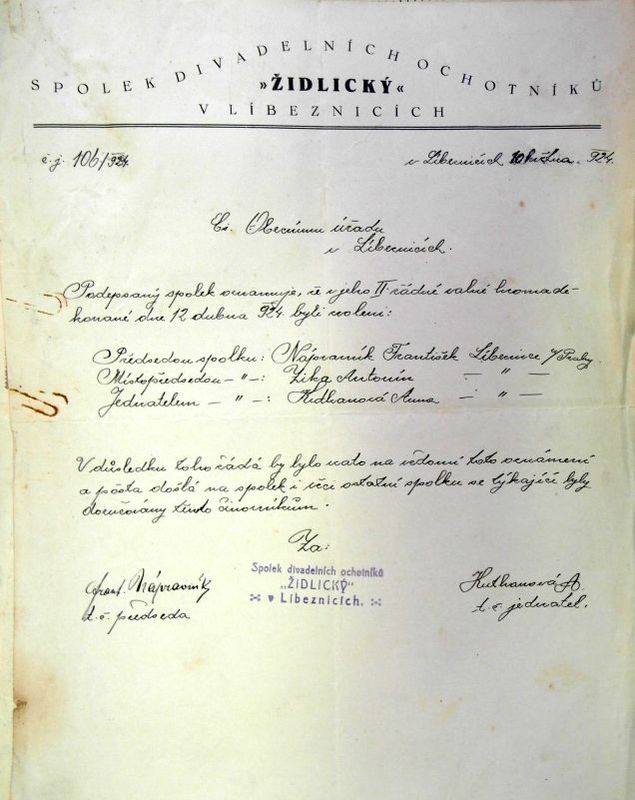 SPOLEK DIVADELNÍCH OCHOTNÍKŮ
»ŽIDLICKÝ«
V LÍBEZNICÍCH
č. j. 106/924. v Líbeznicích 10 května 924.
Obecnímu úřadu
v Líbeznicích.
Podepsaný spolek oznamuje, že v jeho II. řádné valné hromadě-
konané dne 12 dubna 924. byli voleni:
Předsedou spolku: Nápravník František Líbeznice u/Prahy.
Místopředsedou – " –: Zika Antonín – " –
Jednatelem – " –: Kuthanová Anna – " –
V důsledku toho žádá by bylo vzato na vědomí toto oznámení
a pošta došlá na spolek i věci ostatní spolku se týkající byly
doručovány těmto činovníkům.
Za:
Frant. Nápravník
t. č. předseda
Spolek divadelních ochotníků
„ŽIDLICKÝ"
v Líbeznicích.
Kuthanová A
t. č. jednatel.